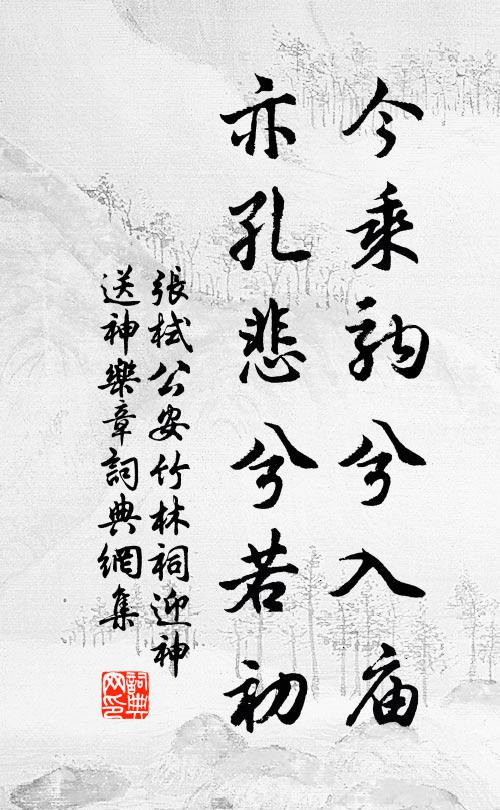 今乘兮入庙
亦孔悲兮若初
張栻公安竹林祠迎神
送神樂章詞典網集
詞典
网印